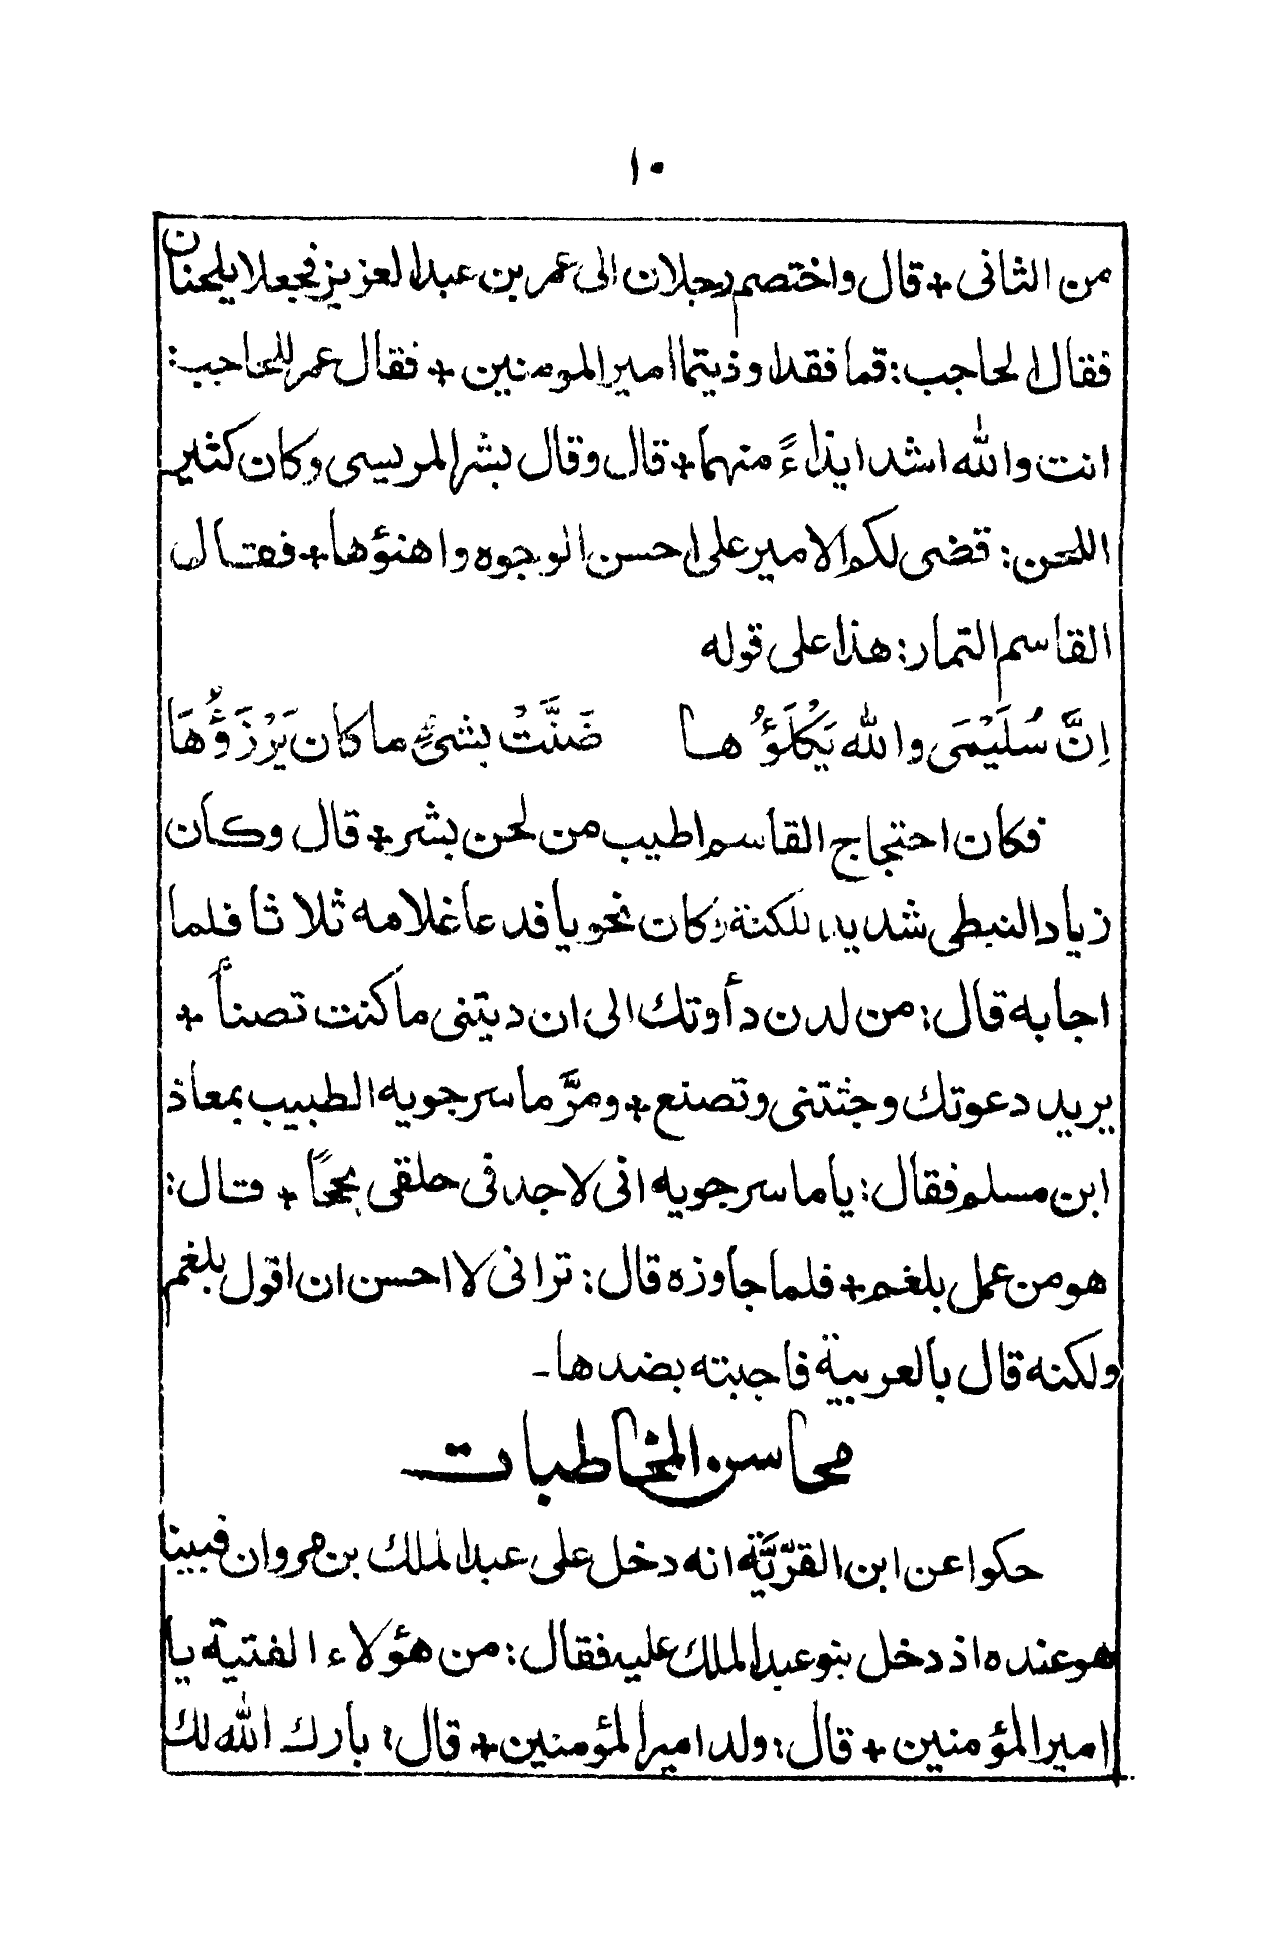 ١٠
من الثانى + قال واختصم رجلان الى عمر بن عبد العزيز فجعلا يلحنان
فقال الحاجب: قما فقد اوذيتما امير المومنين + فقال عمر للحاجب:
انت والله اشد ايذاءً منهما + قال وقال بشر المريسى وكان كثير
اللحن: قضى لكم الامير على احسن الوجوه واهنؤها + فقال
القاسم التمار: هذا على قوله
اِنَّ سُلَيْمَى والله يَكْلَؤُها ضَنَّتْ بشئٍ ما كان يَرْزَؤُهَا
فكان احتجاج القاسم اطيب من لحن بشر + قال وكان
زياد النبطى شديد اللكنة وكان نحويا فدعا غلامه ثلاثا فلما
اجابه قال: من لدن دأوتك الى ان ديتنى ما كنت تصنأ +
يريد دعوتك وجئتنى وتصنع + ومرَّ ماسرجويه الطبيب بمعاذ
ابن مسلم فقال: يا ماسرجويه انى لاجد فى حلقى بححًا + قال:
هو من عمل بلغم + فلما جاوزه قال: ترانى لا احسن ان اقول بلغم
ولكنه قال بالعربية فاجبته بضدها -
محاسن المخاطبات
حكوا عن ابن القرّيَّة انه دخل على عبد الملك بن مروان فبينا
هو عنده اذ دخل بنو عبد الملك عليه فقال: من هؤلاء الفتية يا
امير المؤمنين + قال: ولد امير المؤمنين + قال: بارك الله لك